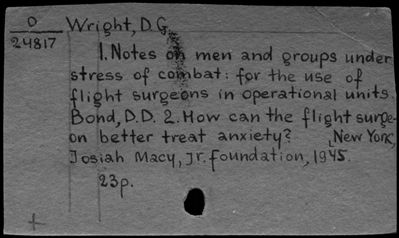 O Wright, D.G.
24817
1. Notes on men and groups under
stress of combat: for the use of
flight surgeons in operational units.
Bond, D.D. 2. How can the flight surge-
on better treat anxiety? [New York,
Josiah Macy, Jr. foundation, 1945.
23p.
+